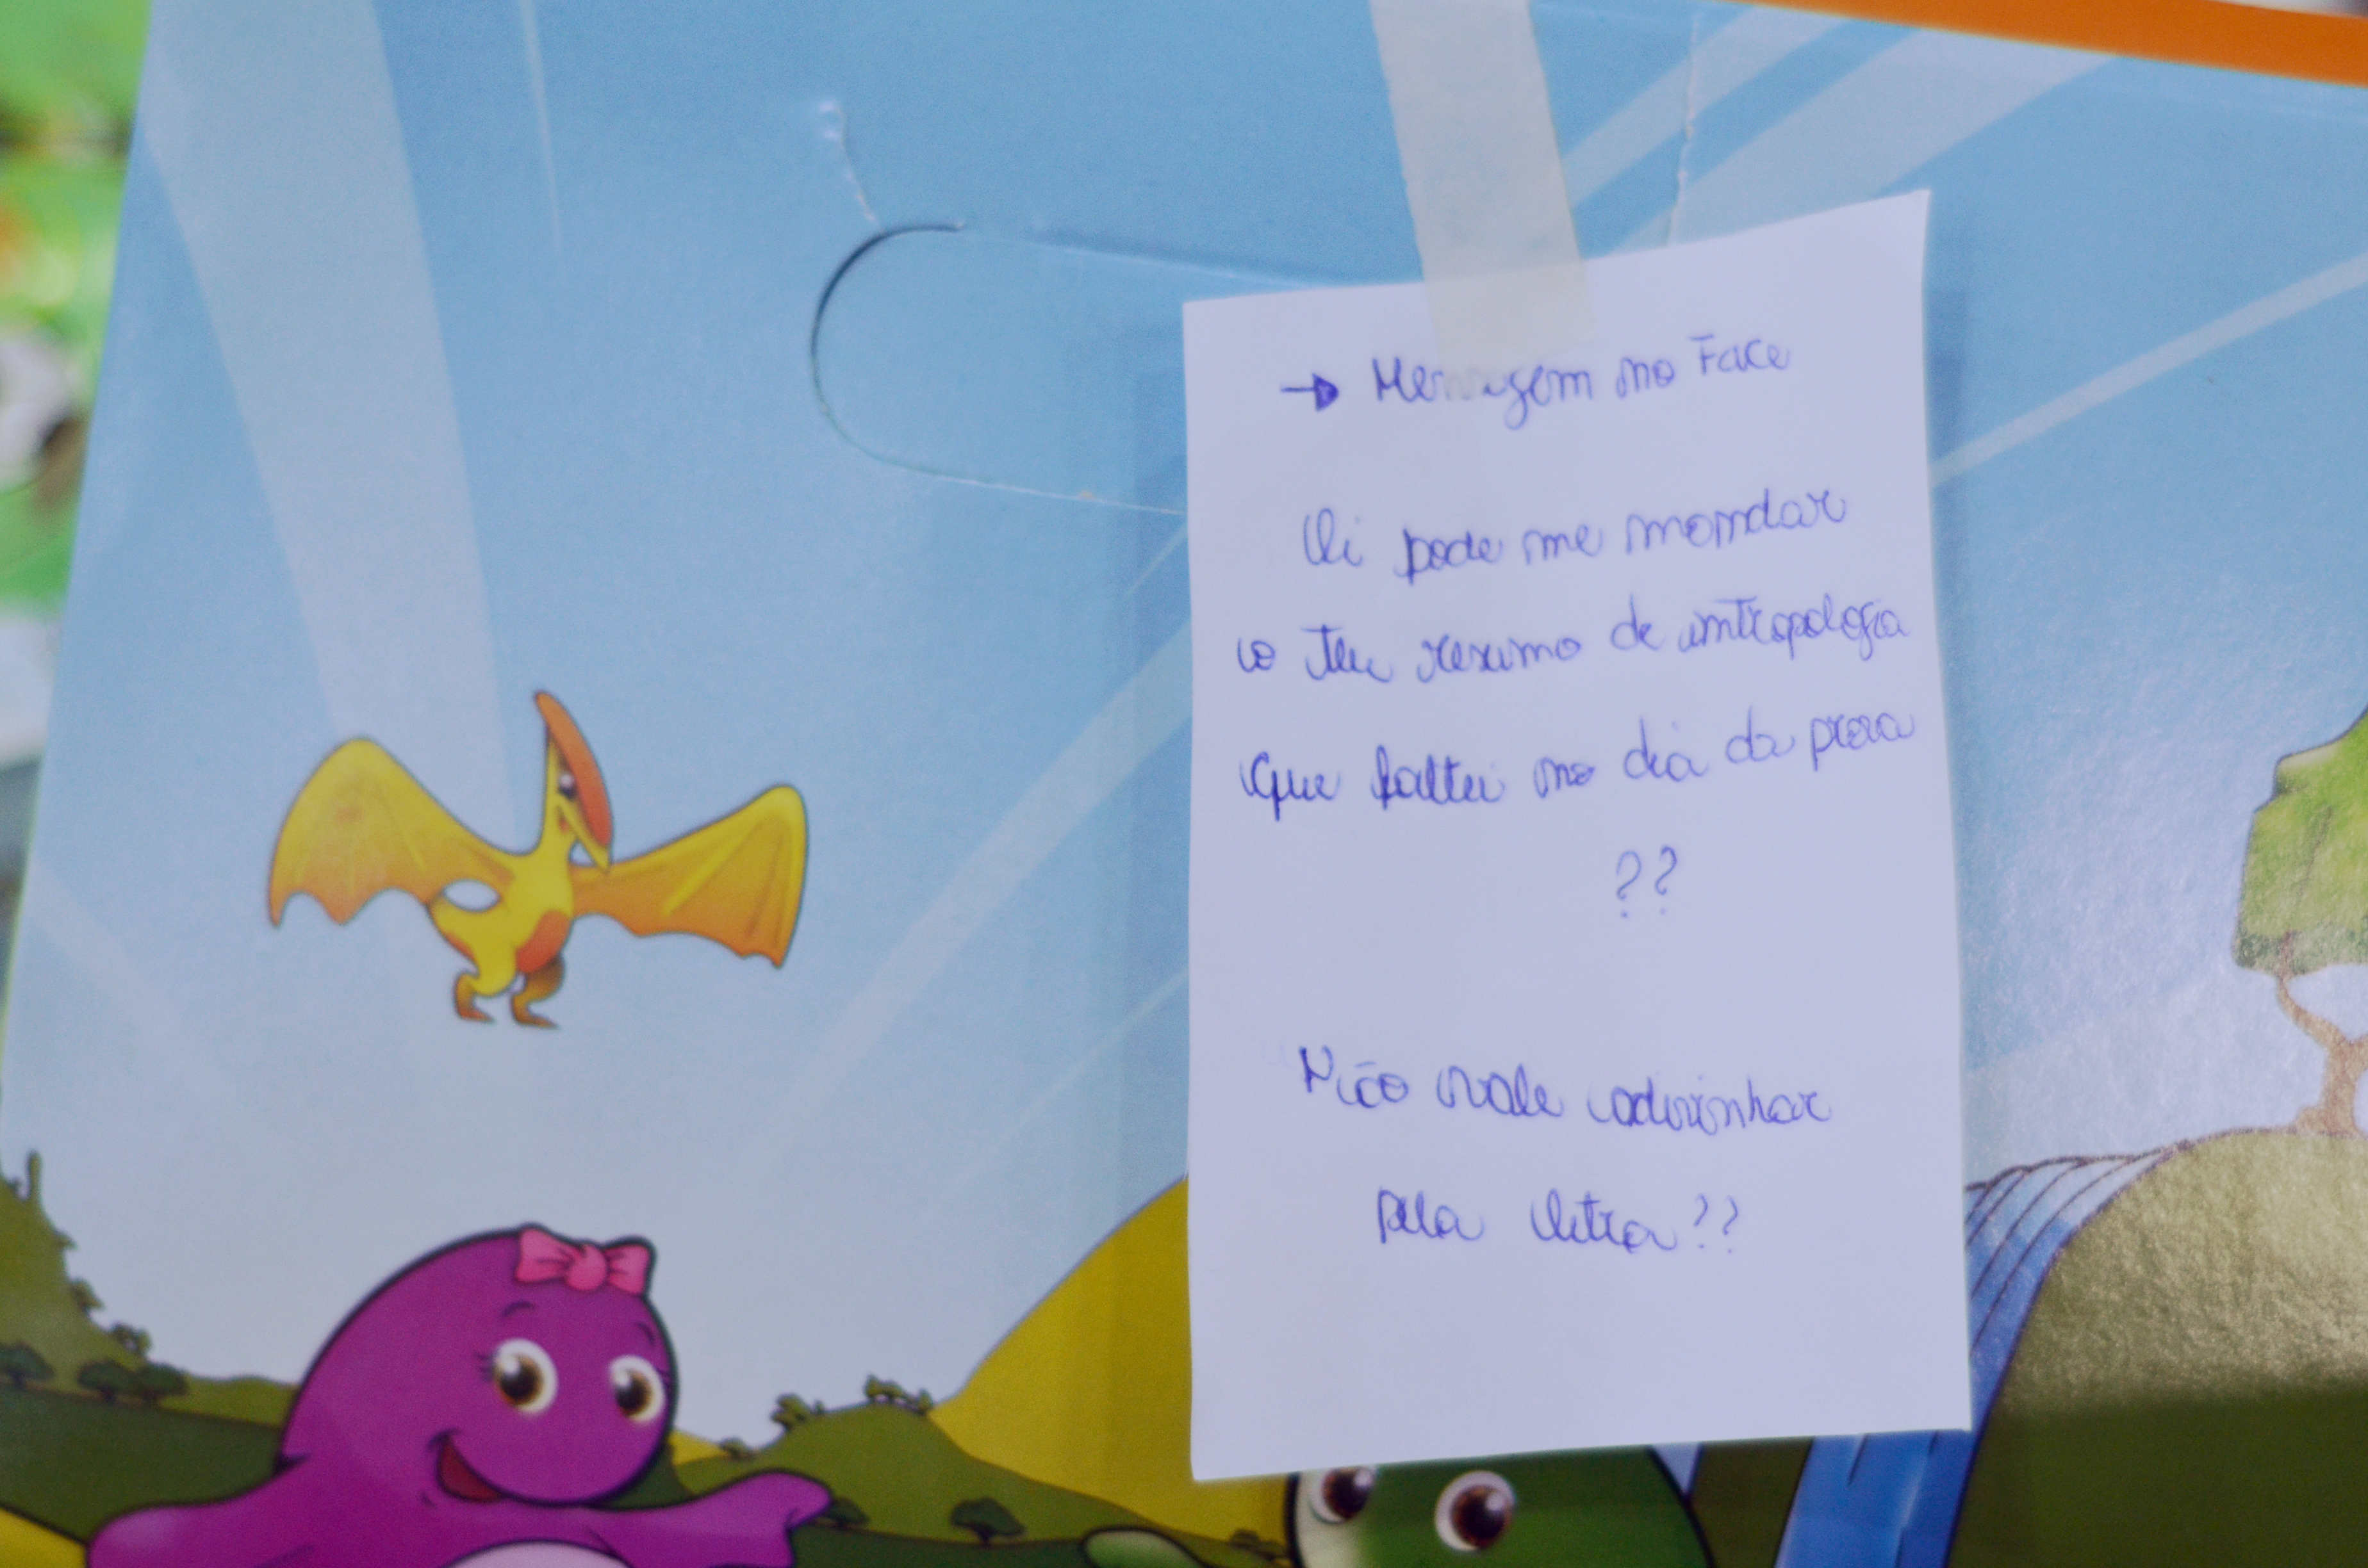 → Mensagem no Face
Oi pode me mandar
o teu resumo de antropologia
que faltei no dia da prova
??
Não vale adivinhar
pela letra??